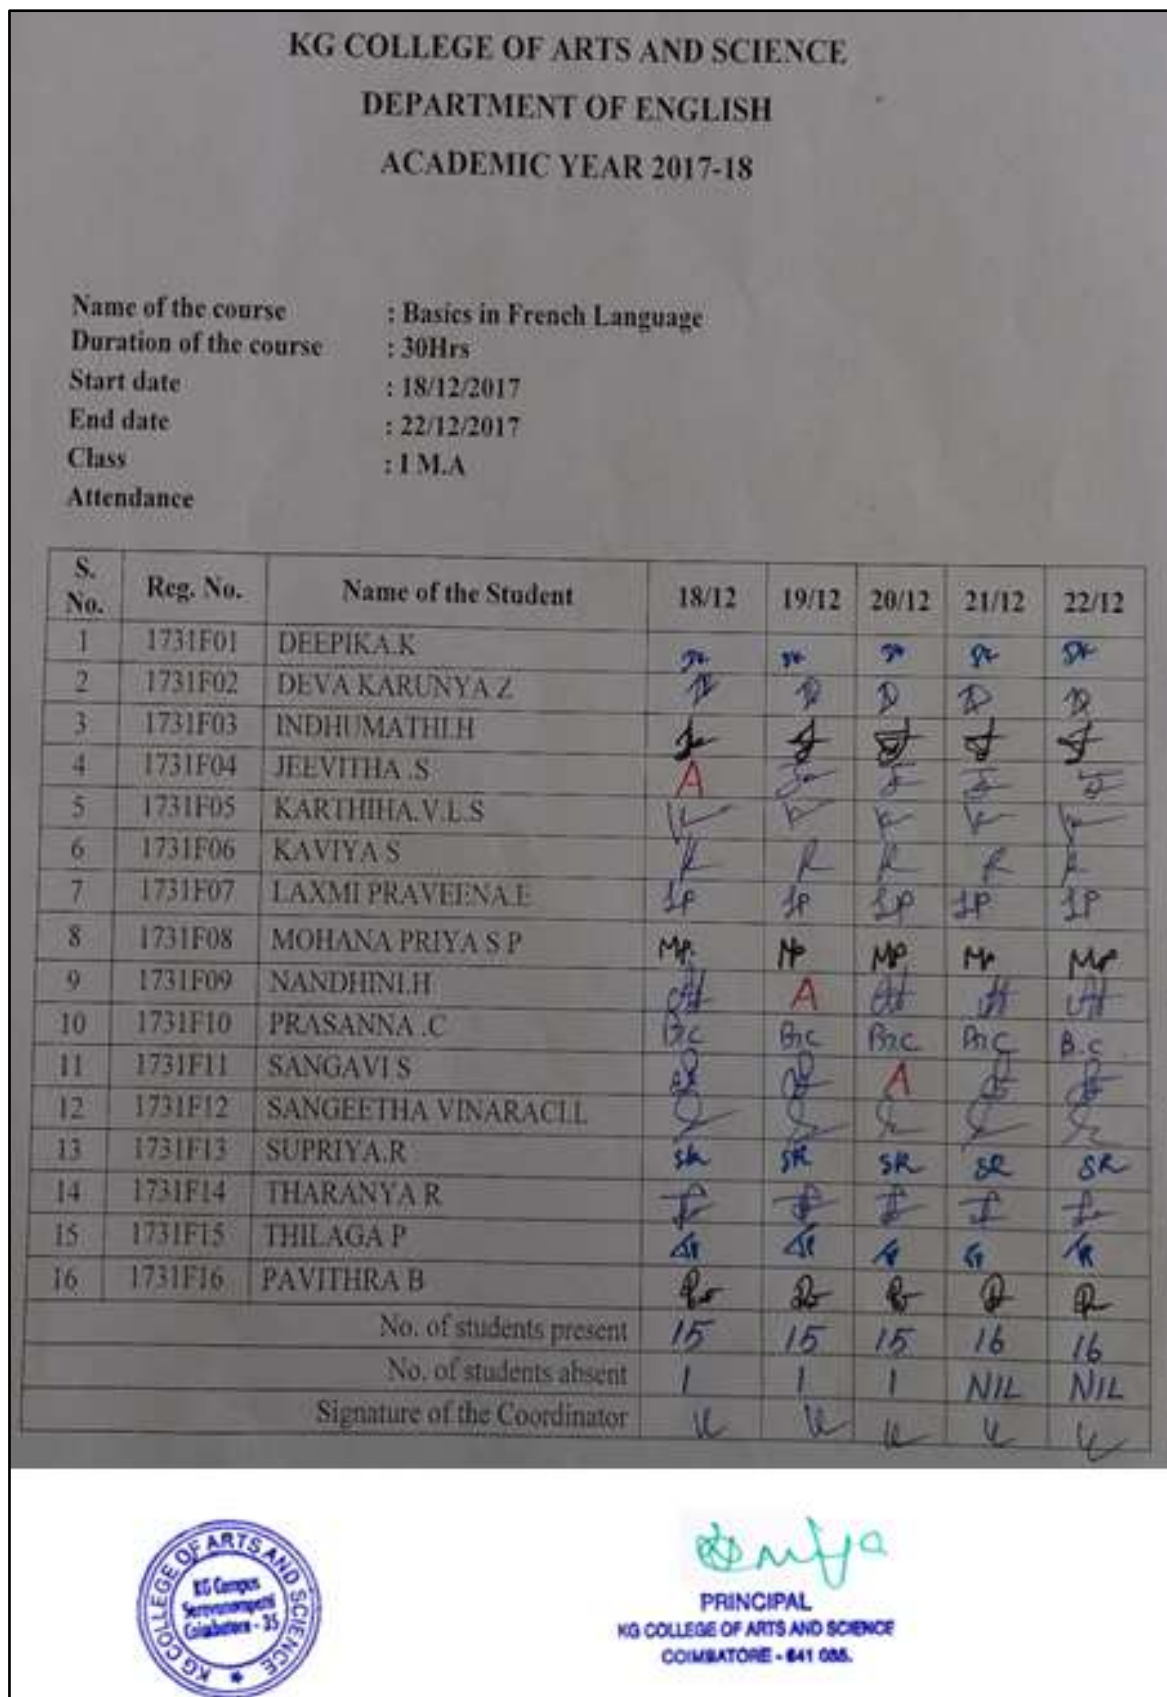 KG COLLEGE OF ARTS AND SCIENCE
DEPARTMENT OF ENGLISH
ACADEMIC YEAR 2017-18
Name of the course : Basics in French Language
Duration of the course : 30Hrs
Start date : 18/12/2017
End date : 22/12/2017
Class : I M.A
Attendance
S. No. Reg. No. Name of the Student 18/12 19/12 20/12 21/12 22/12
1 1731F01 DEEPIKA.K
2 1731F02 DEVA KARUNYA Z D D D D
3 1731F03 INDHUMATHI.H
4 1731F04 JEEVITHA .S A
5 1731F05 KARTHIHA.V.L.S
6 1731F06 KAVIYA S K R R R R
7 1731F07 LAXMI PRAVEENA.E LP LP LP LP LP
8 1731F08 MOHANA PRIYA S P MP. MP MP MP MP
9 1731F09 NANDHINI.H A
10 1731F10 PRASANNA .C B.C
11 1731F11 SANGAVI S A
12 1731F12 SANGEETHA VINARACI.L
13 1731F13 SUPRIYA.R SR SR SR SR SR
14 1731F14 THARANYA R
15 1731F15 THILAGA P
16 1731F16 PAVITHRA B
No. of students present 15 15 15 16 16
No. of students absent 1 1 1 NIL NIL
Signature of the Coordinator
KG COLLEGE OF ARTS AND SCIENCE
KG Campus
Saravanampatti
Coimbatore - 35
PRINCIPAL
KG COLLEGE OF ARTS AND SCIENCE
COIMBATORE - 641 035.